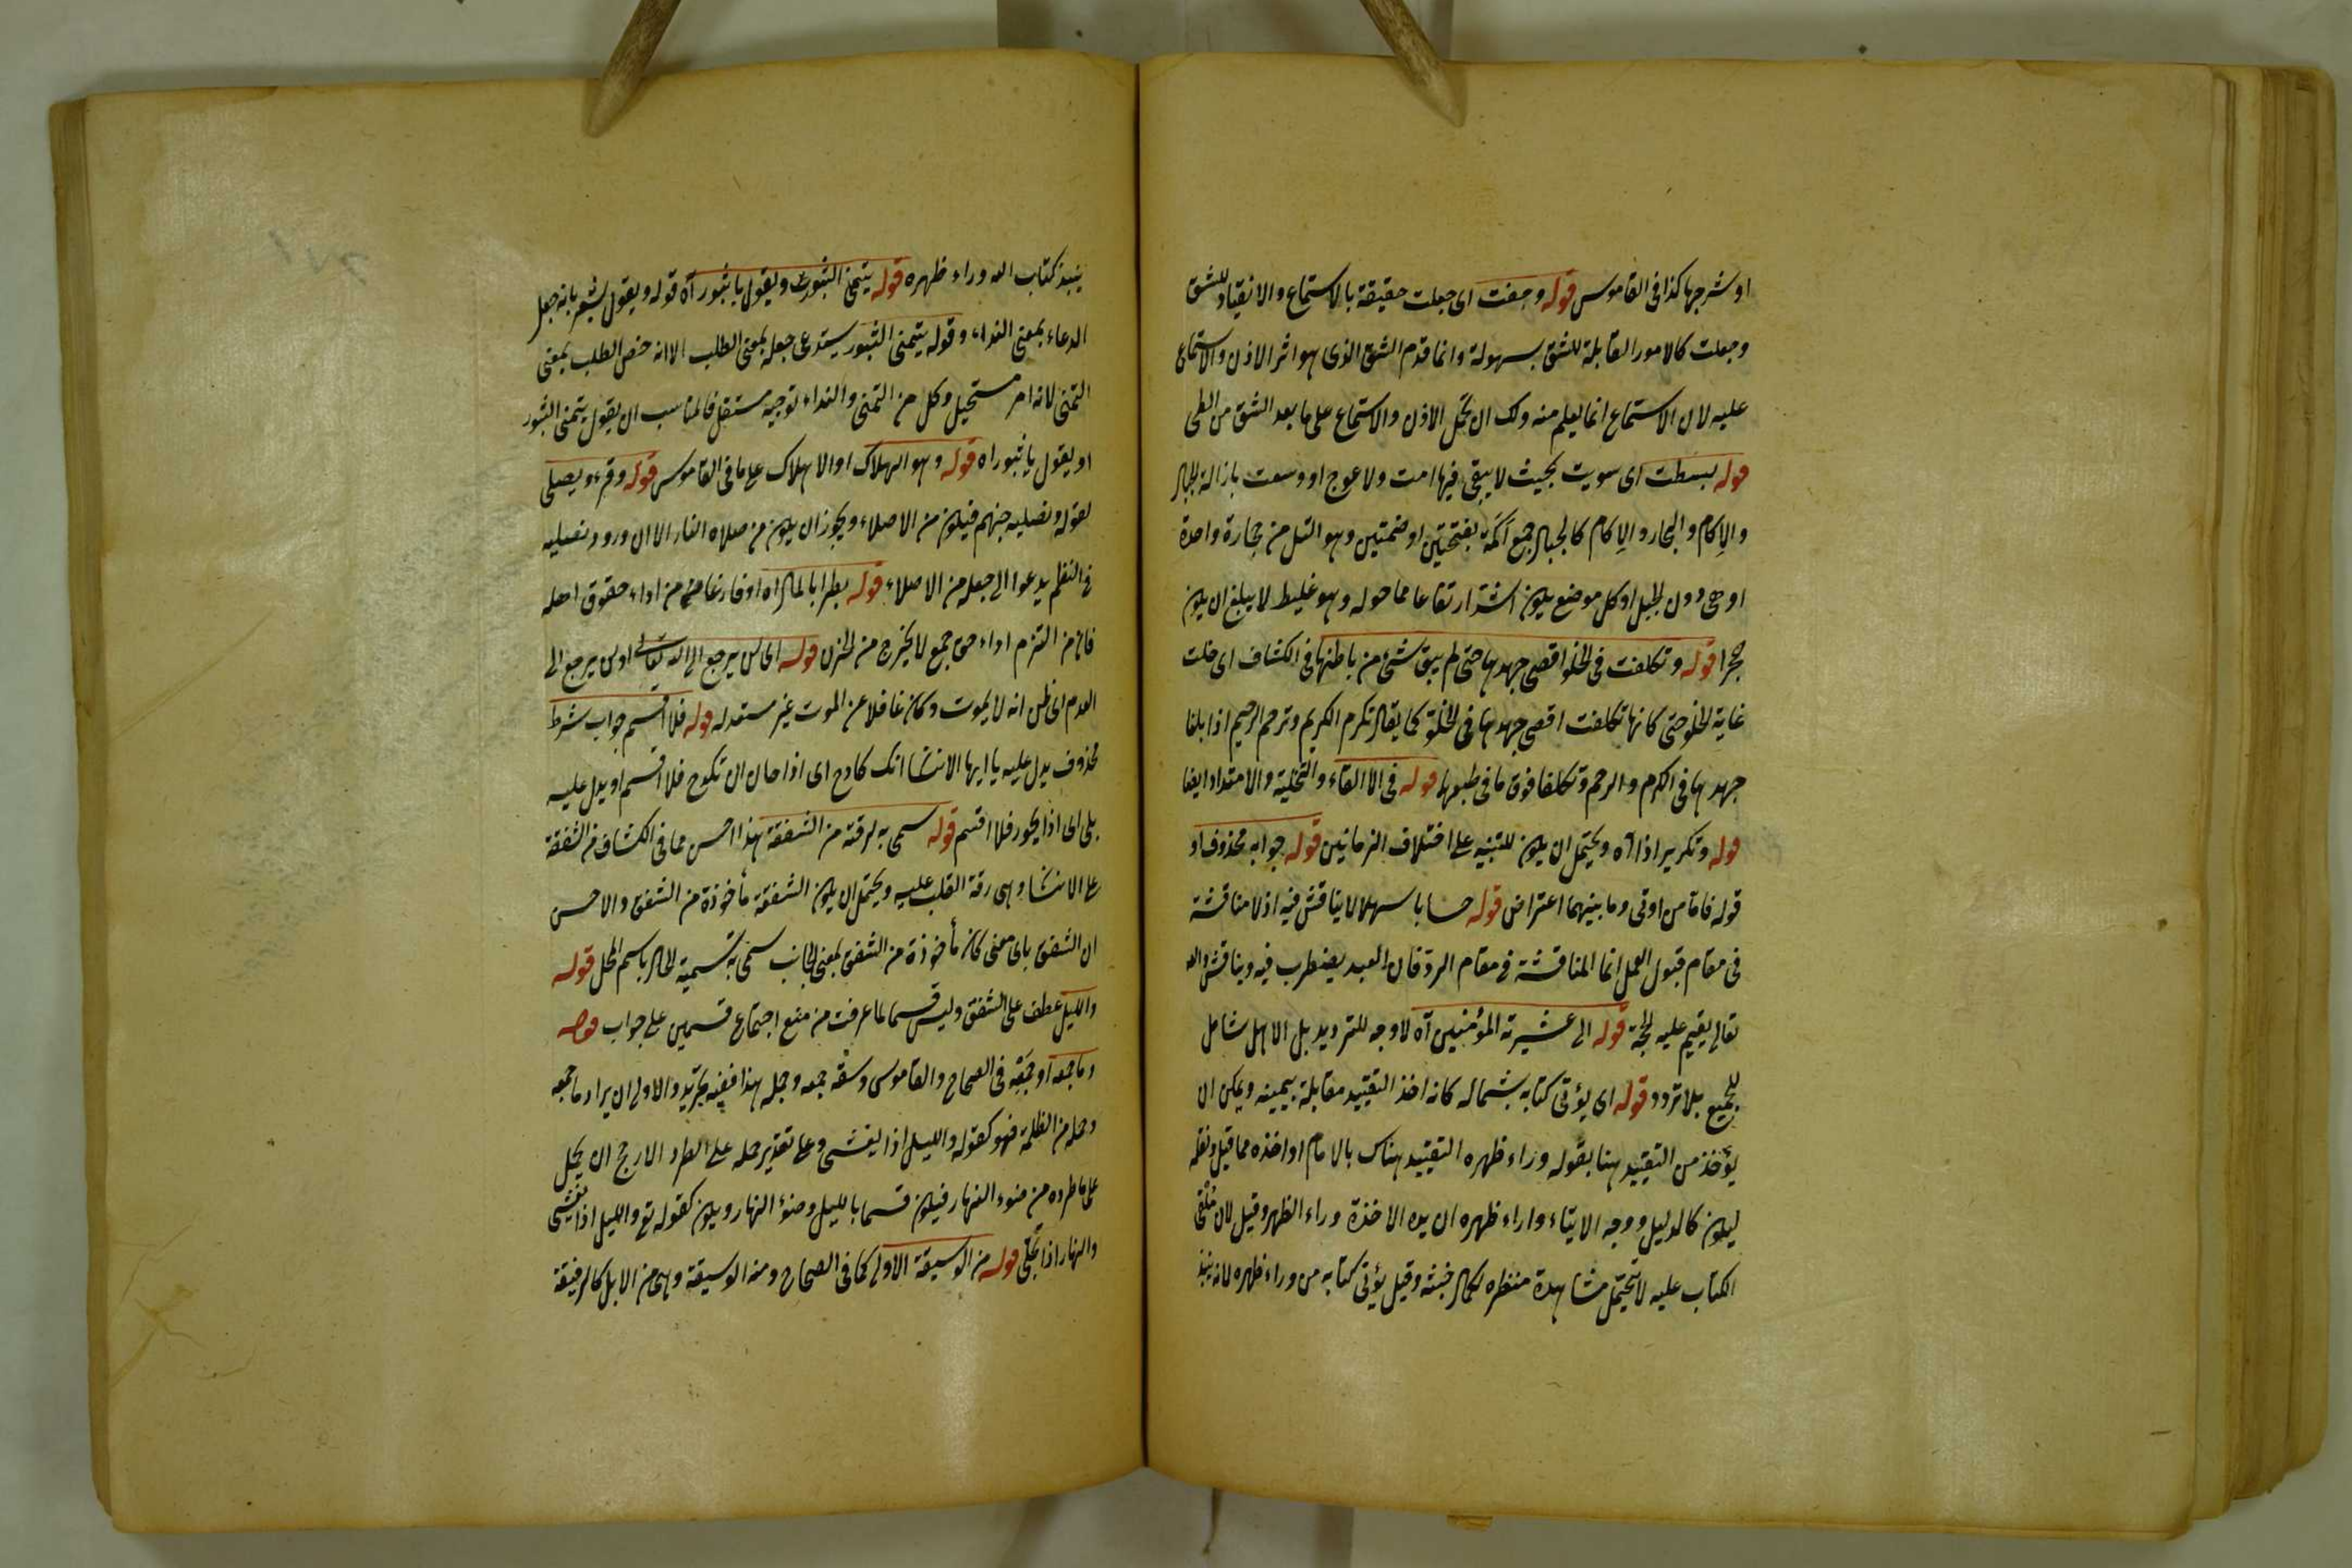 او شرجها كذا فى القاموس قوله وحقت اى جعلت حقيقة بالاستماع والانقياد للشق
وجعلت كالامور القابلة للشق بسهولة وانما قدم الشق الذى هو اثر الاذن والاستماع
عليه لان الاستماع انما يعلم منه ولك ان تحمل الاذن والاستماع على ما بعد الشق من الطى
قوله بسطت اى سويت بحيث لا يبقى فيها امت ولا عوج او وسعت بازالة الجبال
والاكام والبحار والاكام كالجبال جمع اكمة بفتحتين او ضمتين وهو التل من حجارة واحدة
او هى دون الجبل او كل موضع يكون اشد ارتفاعا مما حوله وهو غليظ لا يبلغ ان يكون
حجرا قوله وتكلفت فى الخلو اقصى جهدها حتى لم يبق شئ من باطنها فى الكشاف اى خلت
غاية الخلو حتى كانها تكلفت اقصى جهدها فى الخلو كما يقال تكرم الكريم وترحم الرحيم اذا بلغا
جهدهما فى الكرم والرحم وتكلفا فوق ما فى طبعهما قوله فى الالقاء والتخلية والامتداد ايضا
قوله وتكرير اذا اه ويحتمل ان يكون للتنبيه على اختلاف الزمانين قوله جوابه محذوف او
قوله فاما من اوتى وما بينهما اعتراض قوله حسابا سهلا لا يناقش فيه اذ لا مناقشة
فى مقام قبول العمل انما المناقشة فى مقام الرد فان العبد يضطرب فيه ويناقش والله
تعالى يقيم عليه الحجة قوله الى عشيرته المؤمنين اه لا وجه للترديد بل الاهل شامل
للجميع بلا تردد قوله اى يؤتى كتابه بشماله كانه اخذ التقييد مقابلة بيمينه ويمكن ان
يؤخذ من التقييد هنا بقوله وراء ظهره التقييد هناك بالامام او اخذه مما قيل ونقله
ليكون كالدليل ووجه الايتاء وراء ظهره ان يده الاخذة وراء الظهر وقيل لان مُلقى
الكتاب عليه لا تحتمل مشاهدة منظره لكمال خبثه وقيل يؤتى كتابه من وراء ظهره لانه ينبذ
ينبذ كتاب الله وراء ظهره قوله يتمنى الثبور ويقول يا ثبوراه قوله ويقول يشعر بانه جعل
الدعاء بمعنى النداء وقوله يتمنى الثبور يستدعى جعله بمعنى الطلب الا انه خص الطلب بمعنى
التمنى لانه امر مستحيل وكل من التمنى والنداء توجيه مستقل فالمناسب ان يقول يتمنى الثبور
او يقول يا ثبوراه قوله وهو الهلاك او الاهلاك على ما فى القاموس قوله وقرء ويصلى
لقوله ونصليه جهنم فيكون من الاصلاء ويجوز ان يكون من صلاه النار الا ان ورود نصليه
فى النظم يدعوا الى جعله من الاصلاء قوله بطرا بالمال اه او فارغا من اداء حقوق اهله
فان من التزم اداء حق جمع لا يخرج من الحزن قوله اى لن يرجع الى الله تعالى او لن يرجع الى
العدم اى ظن انه لا يموت وكان غافلا عن الموت غير مستعد له قوله فلا اقسم جواب شرط
محذوف يدل عليه يا ايها الانسان انك كادح اى اذا حان ان تكدح فلا اقسم او يدل عليه
بلى اى اذا يحور فلا اقسم قوله سمى به لرقته من الشفقة هذا احسن مما فى الكشاف من الشفقة
على الانسان وهى رقة القلب عليه ويحتمل ان يكون الشفقة مأخوذة من الشفق والاحسن
ان الشفق باى معنى كان مأخوذة من الشفق بمعنى الجانب سمى به تسمية للحال باسم المحل قوله
والليل عطف على الشفق وليس قسما لما عرفت من منع اجتماع قسمين على جواب قوله
وما جمعه او جمعه فى الصحاح والقاموس وسقه جمعه وحمله هذا ففيه تجريد والاولى ان يراد ما جمعه
وحمله من الظلمة فهو كقوله والليل اذا يغشى وعلى تقدير حمله على الطرد الارجح ان يحمل
على ما طرده من ضوء النهار فيكون قسما بالليل وضوء النهار ويكون كقوله تع والليل اذا يغشى
والنهار اذا تجلى قوله من الوسيقة الاولى كما فى الصحاح ومنه الوسيقة وهى من الابل كالرفقة